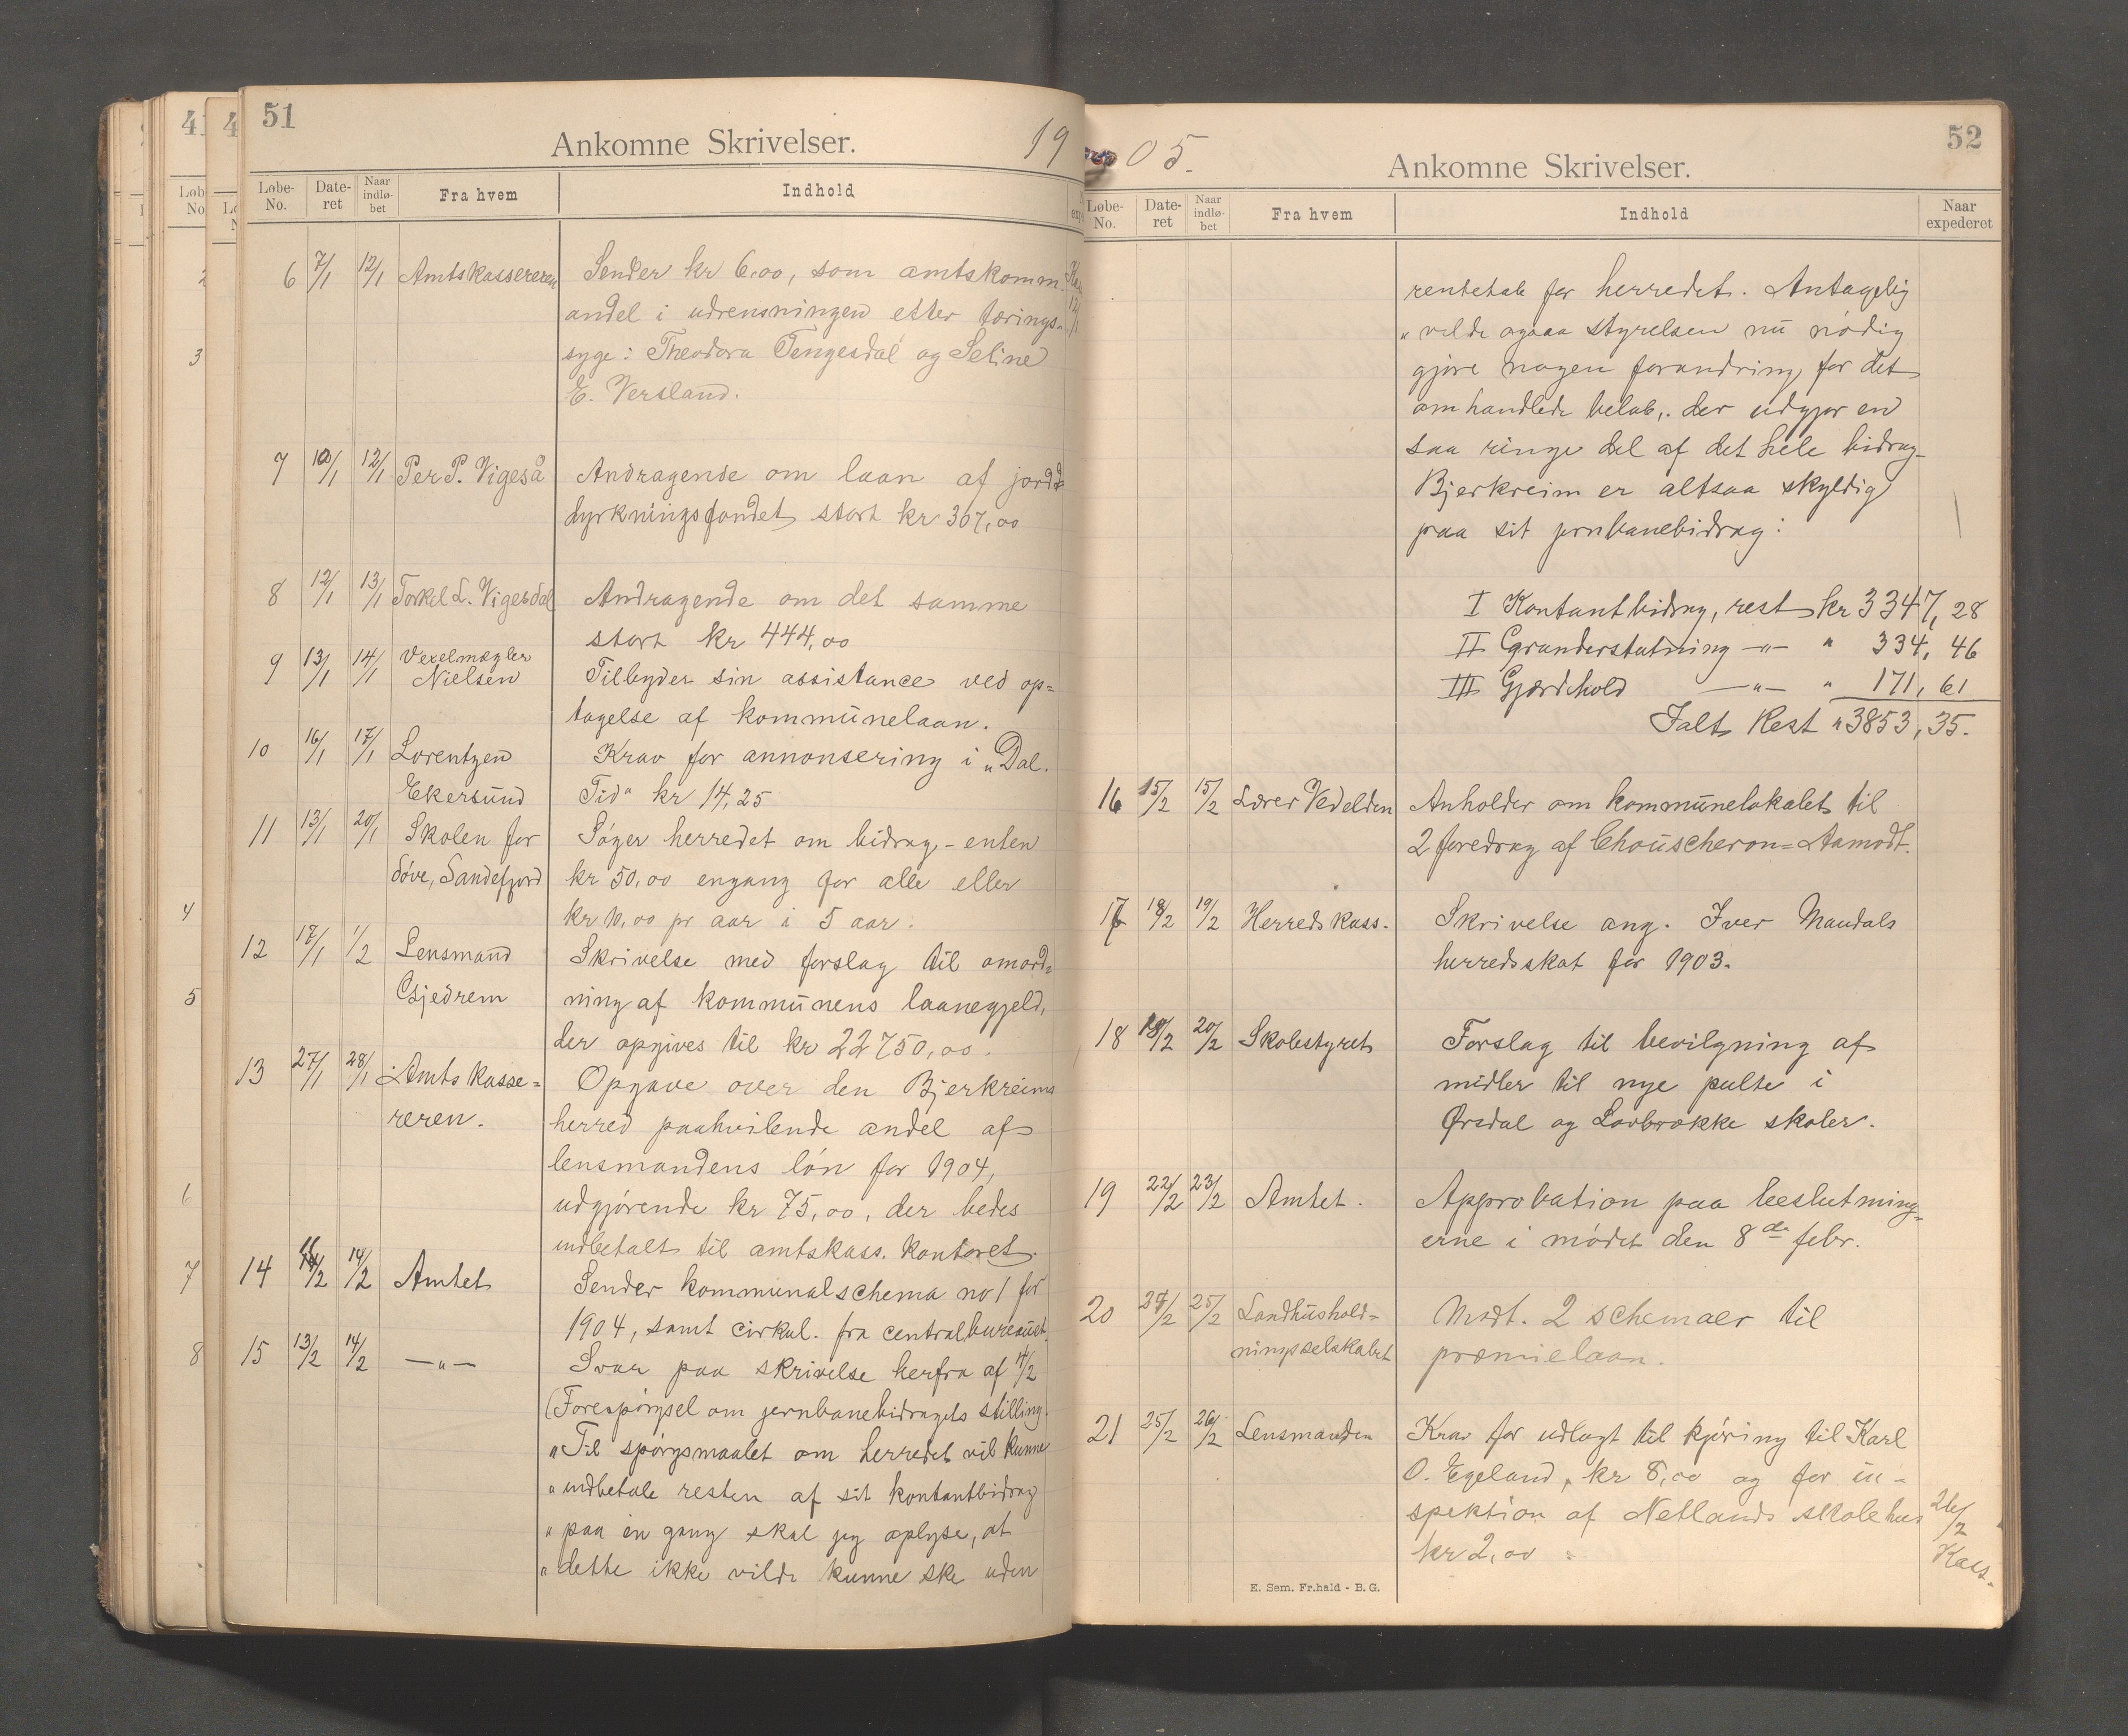 51
Ankomne Skrivelser.
19
Løbe-No. Dateret Naar indløbet Fra hvem Indhold
6 7/1 12/1 Amtskassereren Sender kr 6,00, som amtskomm.
andel i udrensningen efter tærings-
syge: Theodora Tengesdal og Seline
E. Versland.
7 10/1 12/1 Per P. Vigeså Andragende om laan af jord-
dyrkningsfondet stort kr 307,00
8 12/1 13/1 Torkel L. Vigesdal Andragende om det samme
stort kr 444,00
9 13/1 14/1 Vexelmægler Nielsen Tilbyder sin assistance ved op=
tagelse af kommunelaan.
10 16/1 17/1 Lorentzen Ekersund Krav for annonsering i „Dal.
Tid" kr 14,25
11 13/1 20/1 Skolen for døve, Sandefjord Søger herredet om bidrag - enten
kr 50,00 engang for alle eller
kr 10,00 pr aar i 5 aar.
12 17/1 1/2 Lensmand Gjedrem Skrivelse med forslag til omord=
ning af kommunens laanegjeld,
der opgives til kr 22750,00.
13 27/1 28/1 Amtskasse=reren. Opgave over den Bjerkreims
herred paahvilende andel af
lensmandens løn for 1904,
udgjørende kr 75,00, der bedes
indbetalt til amtskass. kontoret.
14 11/2 14/2 Amtet Sender kommunalschema no 1 for
1904, samt cirkul. fra centralbureauet.
15 13/2 14/2 —„— Svar paa skrivelse herfra af 11/2
(Forespørgsel om jernbanebidragets stilling.
„Til spørgsmaalet om herredet vil kunne
„indbetale resten af sit kontantbidrag
„paa én gang skal jeg oplyse, at
„dette ikke vilde kunne ske uden
05.
52
Ankomne Skrivelser.
Løbe-No. Dateret Naar indløbet Fra hvem Indhold Naar expederet
rentetab for herredet. Antagelig
„vilde ogsaa styrelsen nu nødig
gjøre nogen forandring for det
omhandlede beløb, der udgjør en
saa ringe del af det hele bidrag
Bjerkreim er altsaa skyldig
paa sit jernbanebidrag:
I Kontantbidrag, rest kr 3347,28
II Grunderstatning —„— „ 334,46
III Gjærdehold —„— „ 171,61
Ialt Rest „ 3853,35.
16 15/2 15/2 Lærer Vedelden Anholder om kommunelokalet til
2 foredrag af Chouscheron=Aamodt.
17 18/2 19/2 Herredskass. Skrivelse ang. Iver Maudals
herredsskat for 1903.
18 18/2 20/2 Skolestyret Forslag til bevilgning af
midler til nye pulte i
Ørsdal og Lavbrække skoler.
19 22/2 23/2 Amtet. Approbation paa beslutning=
erne i mødet den 8de febr.
20 24/2 25/2 Landhushold=ningsselskabet Modt. 2 schemaer til
præmielaan.
21 25/2 26/2 Lensmanden Krav for udlagt til kjøring til Karl
O. Egeland, kr 8,00 og for in-
spektion af Netlands skolehus
kr 2,00
26/2 Kass.
E. Sem. Fr.hald - B. G.